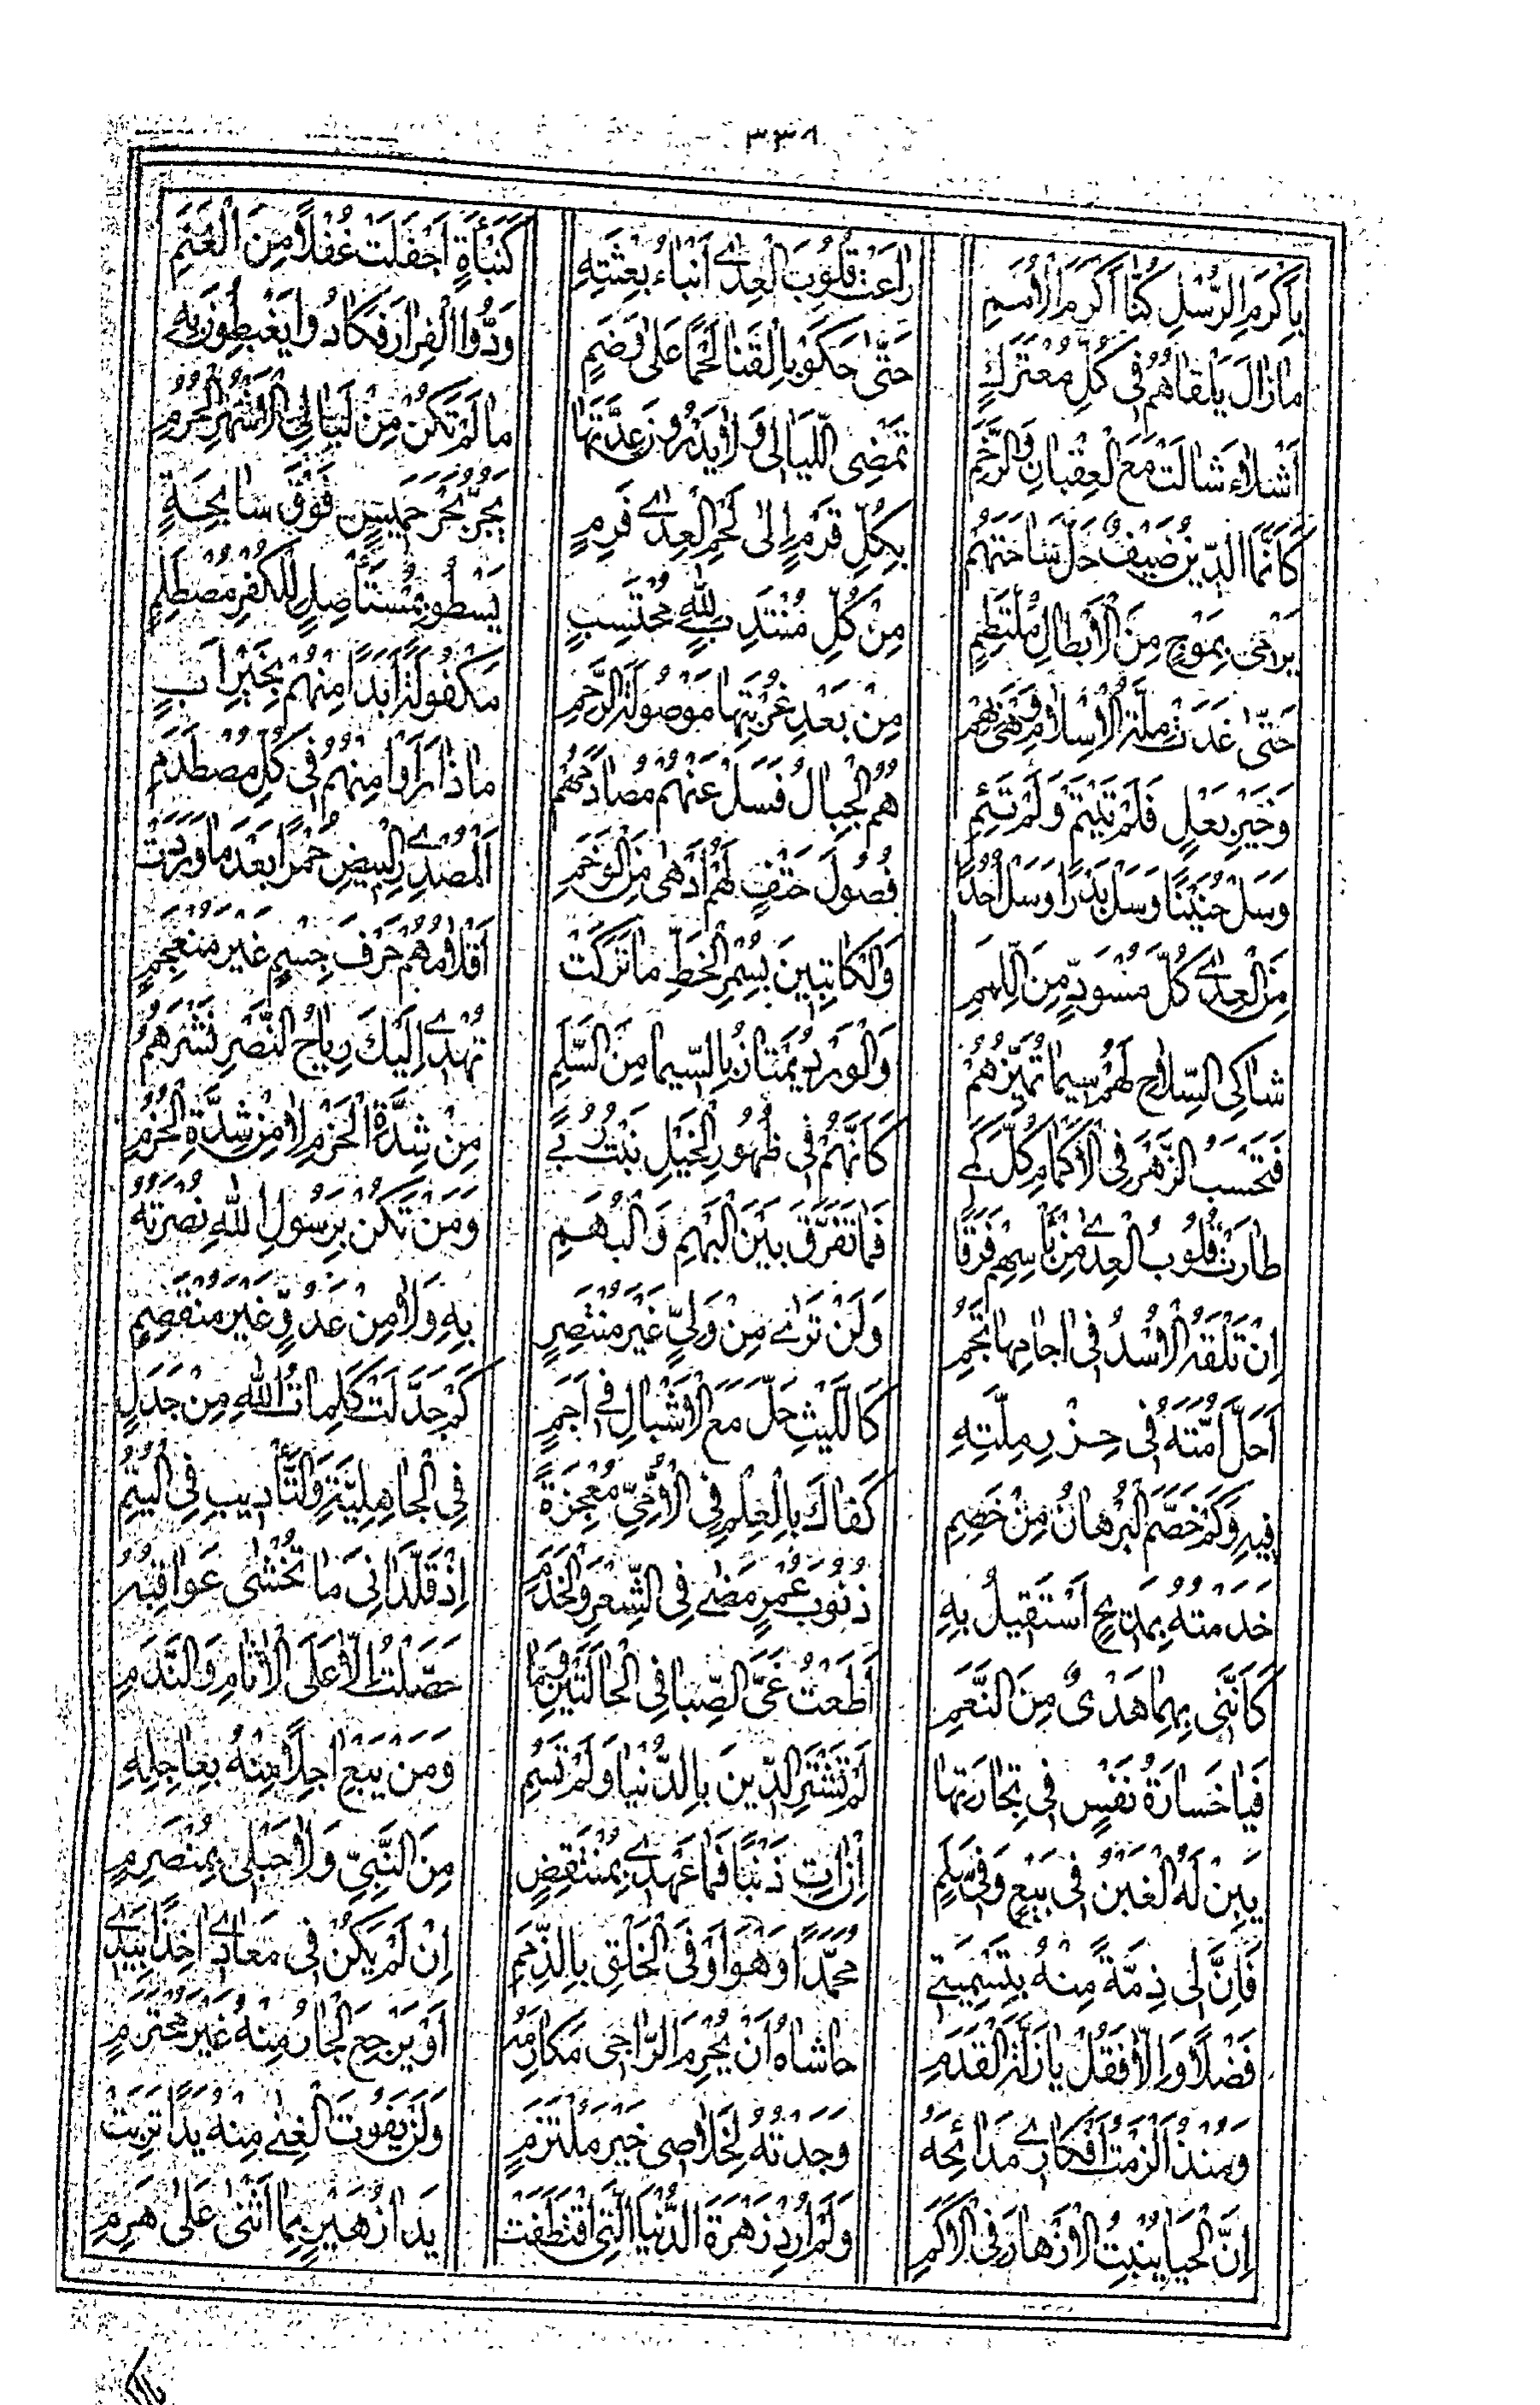 ٣٣٨
بِاَكْرَمِ الرُّسْلِ كُنَّا اَكْرَمَ الْاُمَمِ رَاعَتْ قُلُوبَ الْعِدٰى اَنْبَاءُ بِعْثَتِهِ كَنَبْأَةٍ اَجْفَلَتْ غُفْلًا مِنَ الْغَنَمِ
مَازَالَ يَلْقَاهُمُ فِى كُلِّ مُعْتَرَكٍ حَتّٰى حَكَوْا بِالْقَنَا لَحْمًا عَلٰى وَضَمٍ وَدُّوا الْفِرَارَ فَكَادُوا يَغْبِطُونَ بِهِ
اَشْلَاءَ شَالَتْ مَعَ الْعِقْبَانِ وَالرَّخَمِ تَمْضِى اللَّيَالِى وَلَا يَدْرُونَ عِدَّتَهَا مَا لَمْ تَكُنْ مِنْ لَيَالِى الْاَشْهُرِ الْحُرُمِ
كَاَنَّمَا الدِّينُ ضَيْفٌ حَلَّ سَاحَتَهُمْ بِكُلِّ قَرْمٍ اِلٰى لَحْمِ الْعِدٰى قَرِمٍ يَجُرُّ بَحْرَ خَمِيسٍ فَوْقَ سَابِحَةٍ
يَرْمِى بِمَوْجٍ مِنَ الْاَبْطَالِ مُلْتَطِمٍ مِنْ كُلِّ مُنْتَدِبٍ لِلّٰهِ مُحْتَسِبٍ يَسْطُو بِمُسْتَأْصِلٍ لِلْكُفْرِ مُصْطَلِمٍ
حَتّٰى غَدَتْ مِلَّةُ الْاِسْلَامِ وَهْىَ بِهِمْ مِنْ بَعْدِ غُرْبَتِهَا مَوْصُولَةَ الرَّحِمِ مَكْفُولَةً اَبَدًا مِنْهُمْ بِخَيْرِ اَبٍ
وَخَيْرِ بَعْلٍ فَلَمْ تَيْتَمْ وَلَمْ تَئِمِ هُمُ الْجِبَالُ فَسَلْ عَنْهُمْ مُصَادِمَهُمْ مَاذَا رَاَوْا مِنْهُمُ فِى كُلِّ مُصْطَدَمٍ
وَسَلْ حُنَيْنًا وَسَلْ بَدْرًا وَسَلْ اُحُدًا فُصُولَ حَتْفٍ لَهُمْ اَدْهٰى مِنَ الْوَخَمِ اَلْمُصْدِرِى الْبِيضِ حُمْرًا بَعْدَ مَا وَرَدَتْ
مِنَ الْعِدٰى كُلَّ مُسْوَدٍّ مِنَ اللِّمَمِ وَالْكَاتِبِينَ بِسُمْرِ الْخَطِّ مَا تَرَكَتْ اَقْلَامُهُمْ حَرْفَ جِسْمٍ غَيْرَ مُنْعَجِمٍ
شَاكِى السِّلَاحِ لَهُمْ سِيمَا تُمَيِّزُهُمْ وَالْوَرْدُ يَمْتَازُ بِالسِّيمَا مِنَ السَّلَمِ تُهْدِى اِلَيْكَ رِيَاحُ النَّصْرِ نَشْرَهُمُ
فَتَحْسَبُ الزَّهْرَ فِى الْاَكْمَامِ كُلَّ كَمِى كَاَنَّهُمْ فِى ظُهُورِ الْخَيْلِ نَبْتُ رُبًى مِنْ شِدَّةِ الْحَزْمِ لَا مِنْ شِدَّةِ الْحُزُمِ
طَارَتْ قُلُوبُ الْعِدٰى مِنْ بَأْسِهِمْ فَرَقًا فَمَا تُفَرِّقُ بَيْنَ الْبَهْمِ وَالْبُهَمِ وَمَنْ تَكُنْ بِرَسُولِ اللّٰهِ نُصْرَتُهُ
اِنْ تَلْقَهُ الْاُسْدُ فِى اٰجَامِهَا تَجِمِ وَلَنْ تَرٰى مِنْ وَلِيٍّ غَيْرِ مُنْتَصِرٍ بِهِ وَلَا مِنْ عَدُوٍّ غَيْرِ مُنْقَصِمٍ
اَحَلَّ اُمَّتَهُ فِى حِرْزِ مِلَّتِهِ كَاللَّيْثِ حَلَّ مَعَ الْاَشْبَالِ فِى اَجَمٍ كَمْ جَدَّلَتْ كَلِمَاتُ اللّٰهِ مِنْ جَدَلٍ
فِيهِ وَكَمْ خَصَمَ الْبُرْهَانُ مِنْ خَصِمِ كَفَاكَ بِالْعِلْمِ فِى الْاُمِّىِّ مُعْجِزَةً فِى الْجَاهِلِيَّةِ وَالتَّأْدِيبِ فِى الْيُتُمِ
خَدَمْتُهُ بِمَدِيحٍ اَسْتَقِيلُ بِهِ ذُنُوبَ عُمْرٍ مَضٰى فِى الشِّعْرِ وَالْخِدَمِ اِذْ قَلَّدَانِى مَا تُخْشٰى عَوَاقِبُهُ
كَاَنَّنِى بِهِمَا هَدْىٌ مِنَ النَّعَمِ اَطَعْتُ غَىَّ الصِّبَا فِى الْحَالَتَيْنِ وَمَا حَصَّلْتُ اِلَّا عَلَى الْاٰثَامِ وَالنَّدَمِ
فَيَا خَسَارَةَ نَفْسٍ فِى تِجَارَتِهَا لَمْ تَشْتَرِ الدِّينَ بِالدُّنْيَا وَلَمْ تَسُمِ وَمَنْ يَبِعْ اٰجِلًا مِنْهُ بِعَاجِلِهِ
يَبِنْ لَهُ الْغَبْنُ فِى بَيْعٍ وَفِى سَلَمِ اِنْ اٰتِ ذَنْبًا فَمَا عَهْدِى بِمُنْتَقِضٍ مِنَ النَّبِىِّ وَلَا حَبْلِى بِمُنْصَرِمٍ
فَاِنَّ لِى ذِمَّةً مِنْهُ بِتَسْمِيَتِى مُحَمَّدًا وَهْوَ اَوْفَى الْخَلْقِ بِالذِّمَمِ اِنْ لَمْ يَكُنْ فِى مَعَادِى اٰخِذًا بِيَدِى
فَضْلًا وَاِلَّا فَقُلْ يَا زَلَّةَ الْقَدَمِ حَاشَاهُ اَنْ يُحْرِمَ الرَّاجِى مَكَارِمَهُ اَوْ يَرْجِعَ الْجَارُ مِنْهُ غَيْرَ مُحْتَرَمٍ
وَمُنْذُ اَلْزَمْتُ اَفْكَارِى مَدَائِحَهُ وَجَدْتُهُ لِخَلَاصِى خَيْرَ مُلْتَزِمٍ وَلَنْ يَفُوتَ الْغِنٰى مِنْهُ يَدًا تَرِبَتْ
اِنَّ الْحَيَا يُنْبِتُ الْاَزْهَارَ فِى الْاَكَمِ وَلَمْ اُرِدْ زَهْرَةَ الدُّنْيَا الَّتِى اقْتَطَفَتْ يَدَا زُهَيْرٍ بِمَا اَثْنٰى عَلٰى هَرِمِ